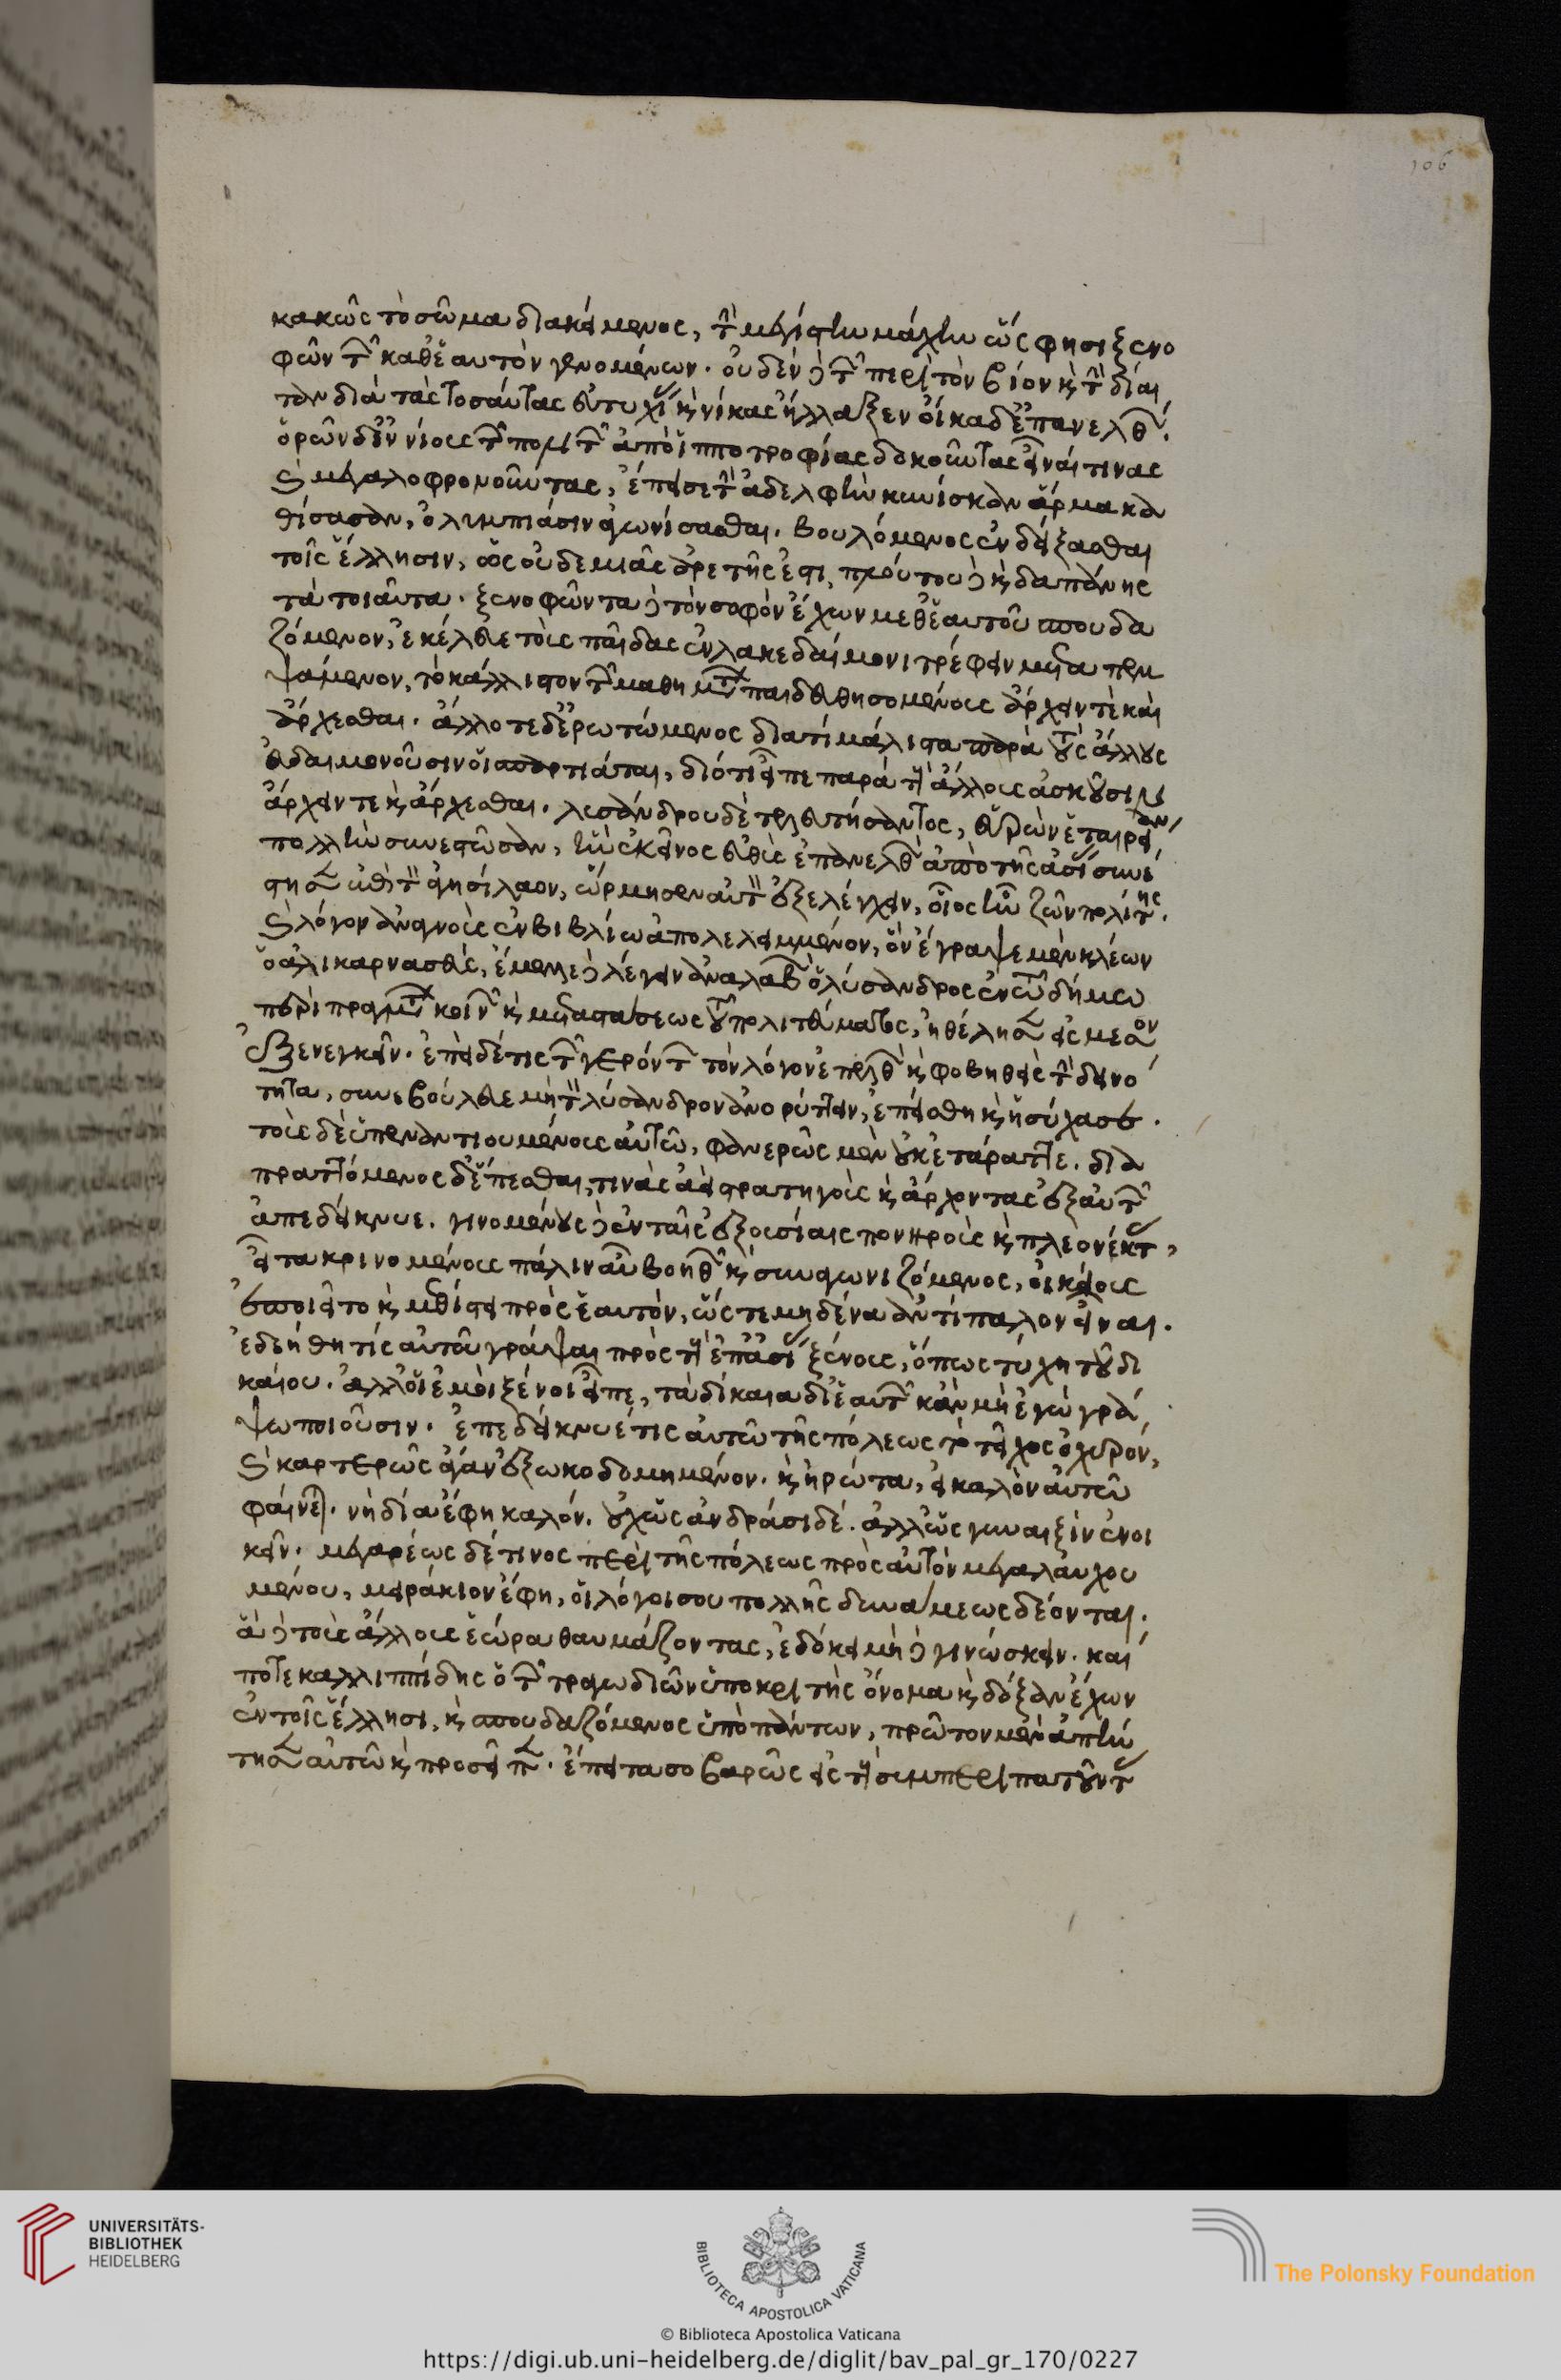 κακῶς τὸ σῶμα διακείμενος, τὴν μεγίστην μάχην ὥς φησι ξενο
φῶν τῶν καθ' ἑαυτὸν γενομένων. οὐδὲν δὲ τῶν περὶ τὸν βίον καὶ τὴν δίαι
ταν διὰ τὰς τοσαύτας εὐτυχίας καὶ νίκας ἤλλαξεν οἴκαδ' ἐπανελθών.
ὁρῶν δ' ἐνίους τῶν πολιτῶν ἀπὸ ἱπποτροφίας δοκοῦντας εἶναί τινας
καὶ μεγαλοφρονοῦντας, ἔπεισε τὴν ἀδελφὴν κυνίσκαν ἅρμα κα
θίσασαν, ὀλυμπιάσιν ἀγωνίσασθαι. βουλόμενος ἐνδείξασθαι
τοῖς ἕλλησιν, ὡς οὐδεμιᾶς ἀρετῆς ἐστι, πλούτου δὲ καὶ δαπάνης
τὰ τοιαῦτα. ξενοφῶντα δὲ τὸν σοφὸν ἔχων μεθ' ἑαυτοῦ σπουδα
ζόμενον, ἐκέλευε τοὺς παῖδας ἐν λακεδαίμονι τρέφειν μεταπεμ
ψάμενον, τὸ κάλλιστον τῶν μαθημάτων παιδευθησομένους ἄρχειν τὲ καὶ
ἄρχεσθαι. ἄλλοτε δ' ἐρωτώμενος διατί μάλιστα παρὰ τοὺς ἄλλους
εὐδαιμονοῦσιν οἱ σπαρτιάται, διότι εἶπε παρὰ τοὺς ἄλλους ἀσκοῦσιν
ἄρχειν τε καὶ ἄρχεσθαι. λυσάνδρου δὲ τελευτήσαντος, εὑρὼν ἑταιρείαν
πολλὴν συνεστῶσαν, ἣν ἐκεῖνος εὐθὺς ἐπανελθὼν ἀπὸ τῆς ἀσίας συνέ
στησεν ἐπὶ τὸν ἀγησίλαον, ὥρμησεν αὐτὸν ἐξελέγχειν, οἷος ἦν ζῶν πολίτης.
καὶ λόγον ἀναγνοὺς ἐν βιβλίω ἀπολελειμμένον, ὃν ἔγραψε μὲν κλέων
ὁ ἁλικαρνασεὺς, ἔμελλε δὲ λέγειν ἀναλαβὼν ὁ λύσανδρος ἐν τῶ δήμω
περὶ πραγμάτων καινῶν καὶ μεταστάσεως τοῦ πολιτεύματος, ἠθέλησεν εἰς μέσον
ἐξενεγκεῖν. ἐπεὶ δέ τις τῶν γερόντων τὸν λόγον ἐπελθὼν καὶ φοβηθεὶς τὴν δεινό
τητα, συνεβούλευε μὴ τὸν λύσανδρον ἀνορύττειν, ἐπείσθη καὶ ἡσύχασε.
τοὺς δὲ ὑπεναντιουμένους αὐτῶ, φανερῶς μὲν οὐκ ἐτάραττε. δια
πραττόμενος δ' ἕπεσθαι, τινὰς ἀεὶ στρατηγοὺς καὶ ἄρχοντας ἐξ αὐτῶν
ἀπεδείκνυε. γινομένους δὲ ἐν ταῖς ἐξουσίαις πονηροὺς καὶ πλεονέκτας,
εἶτα κρινομένους πάλιν αὖ βοηθῶν καὶ συναγωνιζόμενος, οἰκείους
ἐποιεῖτο καὶ μεθίστη πρὸς ἑαυτὸν, ὥστε μηδένα ἀντίπαλον εἶναι.
ἐδεήθη τίς αὐτοῦ γράψαι πρὸς τοὺς ἐπ' ἀσίας ξένους, ὅπως τύχη τοῦ δι
καίου. ἀλλ' οἱ ἐμοὶ ξένοι εἶπε, τὰ δίκαια δι' ἑαυτῶν κἂν μὴ ἐγὼ γρά
ψω ποιοῦσιν. ἐπεδείκνυέ τις αὐτῶ τῆς πόλεως τὸ τεῖχος ὀχυρόν,
καὶ καρτερῶς ἄγαν ἐξωκοδομημένον. καὶ ἠρώτα, εἰ καλὸν αὐτῶ
φαίνεται. νὴ δία ἔφη καλόν. οὐχ ὡς ἀνδράσι δέ. ἀλλ' ὡς γυναιξὶν ἐνοι
κεῖν. μεγαρέως δέ τινος περὶ τῆς πόλεως πρὸς αὐτὸν μεγαλαυχου
μένου, μειράκιον ἔφη, οἱ λόγοι σου πολλῆς δυνάμεως δέονται.
ἃ δὲ τοὺς ἄλλους ἑώρα θαυμάζοντας, ἐδόκει μὴ δὲ γινώσκειν. καί
ποτε καλλιππίδης ὁ τῶν τραγωδιῶν ὑποκριτὴς ὄνομα καὶ δόξαν ἔχων
ἐν τοῖς ἕλλησι, καὶ σπουδαζόμενος ὑπὸ πάντων, πρῶτον μὲν ἀπήν
τησεν αὐτῶ καὶ προσεῖπεν. ἔπειτα σοβαρῶς εἰς τοὺς συμπεριπατοῦντας
106
UNIVERSITÄTS-
BIBLIOTHEK
HEIDELBERG
BIBLIOTECA APOSTOLICA VATICANA
The Polonsky Foundation
© Biblioteca Apostolica Vaticana
https://digi.ub.uni-heidelberg.de/diglit/bav_pal_gr_170/0227